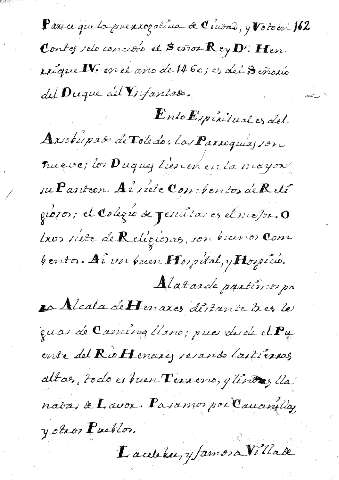 Parece que la prerrogativa de Ciudad, y Voto en 162
Cortes se lo concedio el Señor Rey Dn. Hen-
rrique IV. en el año de 1460; es del Señorio
del Duque del Ynfantado.
En lo Espiritual es del
Arzobispado de Toledo: las Parroquias son
nueve; los Duques tienen en la mayor
su Panteon. Ai siete Combentos de Reli
giosos; el Colegio de Jesuitas es el mejor. O
tros siete de Religiosas, son buenos Com-
bentos. Ai un buen Hospital, y Hospicio.
A la tarde partimos pa
ra Alcala de Henares distante tres le
guas de Camino llano; pues desde el Pu
ente del Rio Henares cesando las tierras
altas, todo es buen Terreno, y lindas lla
nadas de Lavor. Pasamos por
y otros Pueblos.
La celebre, y famosa Villa de